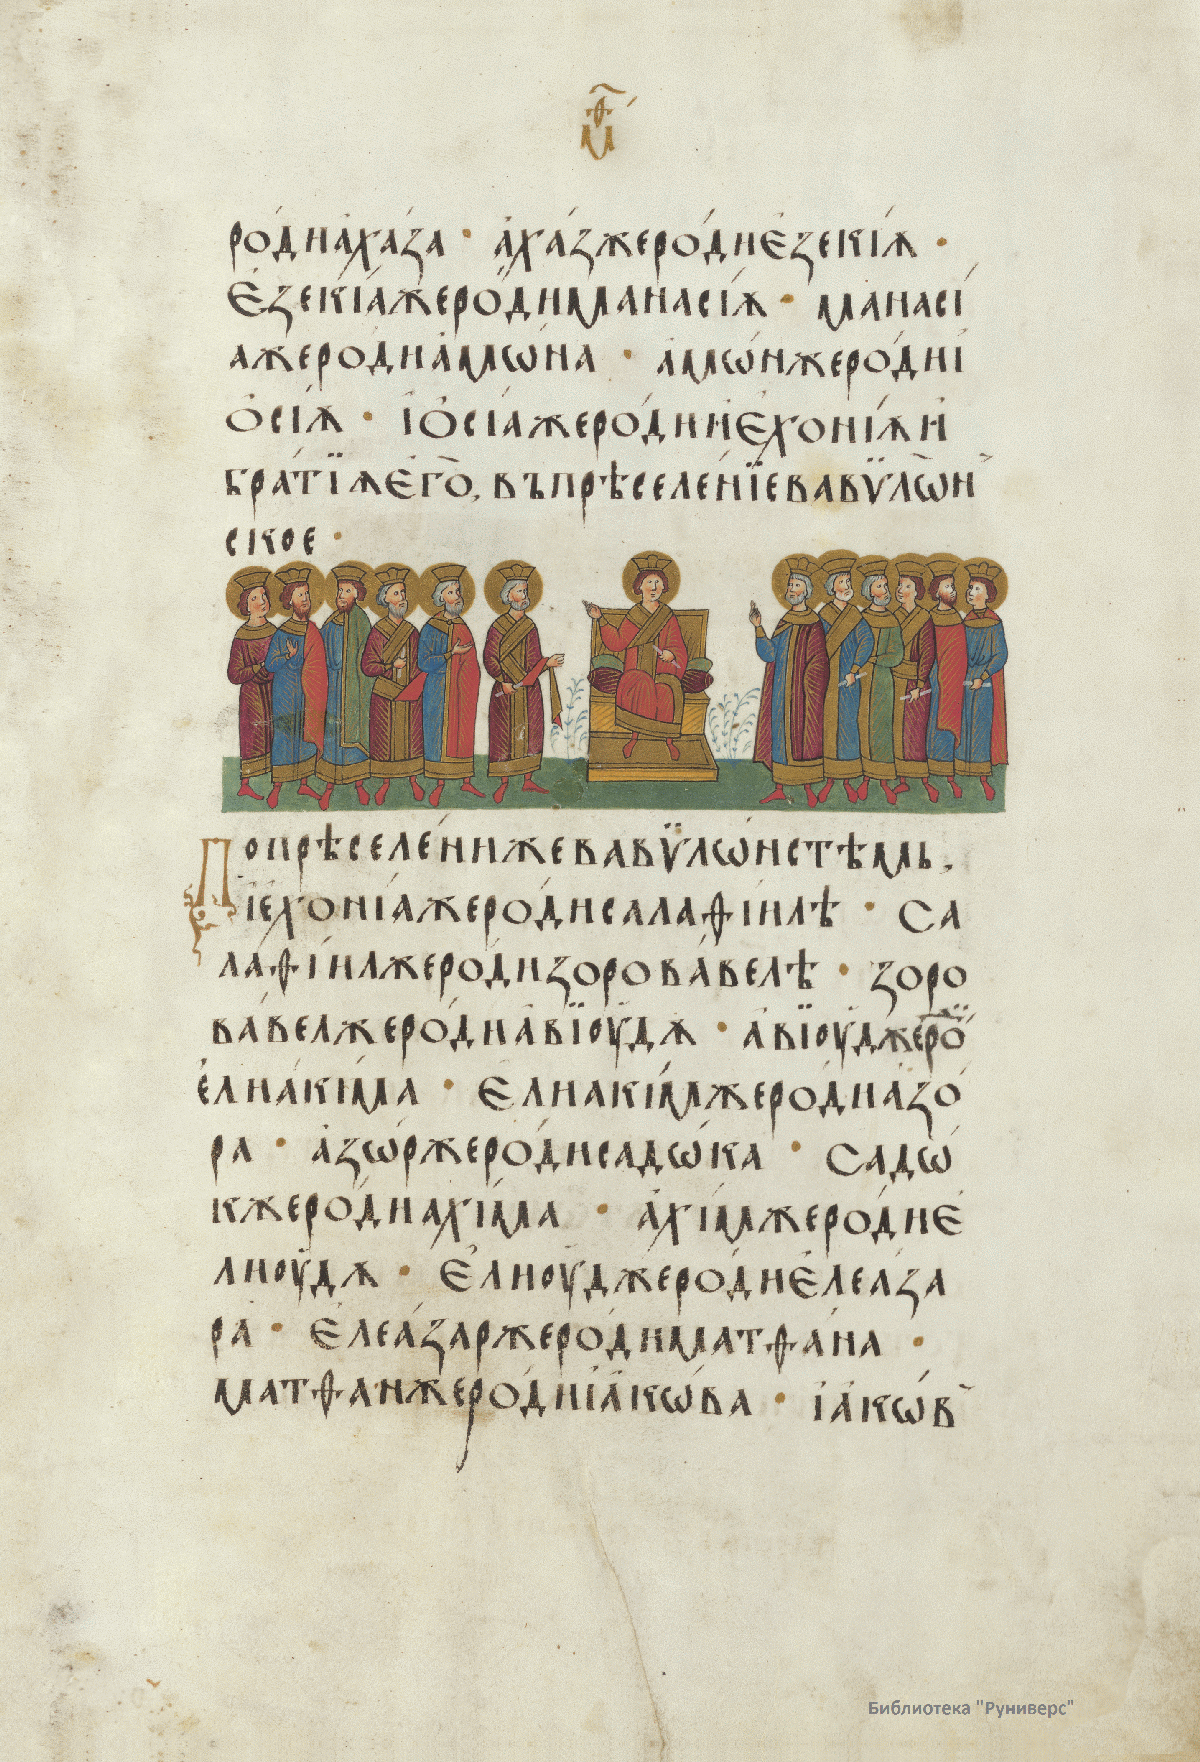 мⷴ҇
ро́дѝа҆ха́за · а҆ха́зжеро́дѝе҆зекі́ѫ ·
Е҆зекі́ажеро́дѝманасі́ѫ · манасі́
ажеро́дѝа҆мѡ́на · а҆мѡ́нжеро́дѝі
о҆сі́ѫ · і҆о҆сі́ажеро́дѝи҆е҆хоні́ѫи҆
бра́тїѫе҆го̀, въпрѣселе́нїевавѷлѡ́н
ское ·
Попрѣселе́нижевавѷлѡ́нстѣмь,
і҆е҆хоні́ажеро́дѝсалаѳі́илѣ · Са
лаѳі́илжеро́дѝзорова́велѣ · зоро
ва́велжеро́дѝа҆вїоу́дѫ · а҆вїоу́джеро́
е҆лиаки́ма · Е҆лиакі́мжеро́дѝа҆зо́
ра · а҆зѡ́ржеро́дѝсадѡ́ка · Садѡ́
кжеро́дѝахі́ма · а҆хі́мжеро́дѝе҆
лиоу́дѫ · Е҆лиоу́джеро́дѝе҆леаза
ра · Е҆леа́заржеро́дѝматѳа́на ·
матѳанжеро́дѝі҆а҆кѡ́ва · і҆а҆кѡ́в
Библиотека "Руниверс"